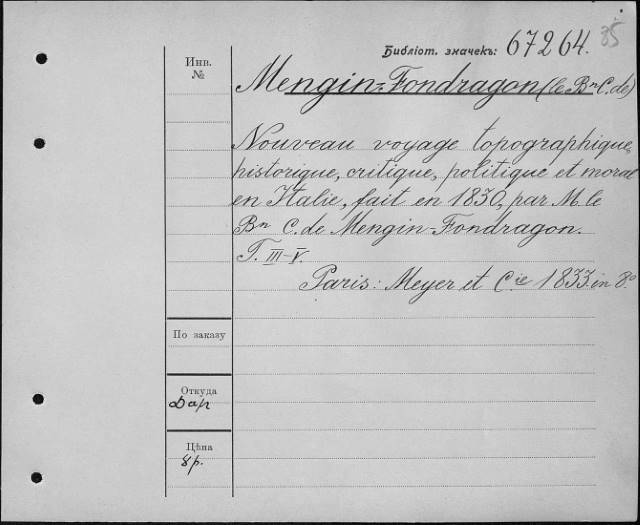 35
Библіот. значекъ: 67264.
Инв.
№
Mengin-Fondragon (le Bⁿ C. de)
Nouveau voyage topographique,
historique, critique, politique et moral
en Italie, fait en 1830, par M. le
Bⁿ C. de Mengin-Fondragon.
T. III-V.
Paris: Meyer et Cⁱᵉ 1833. in 8.º
По заказу
Откуда
Дар
Цѣна
8 р.